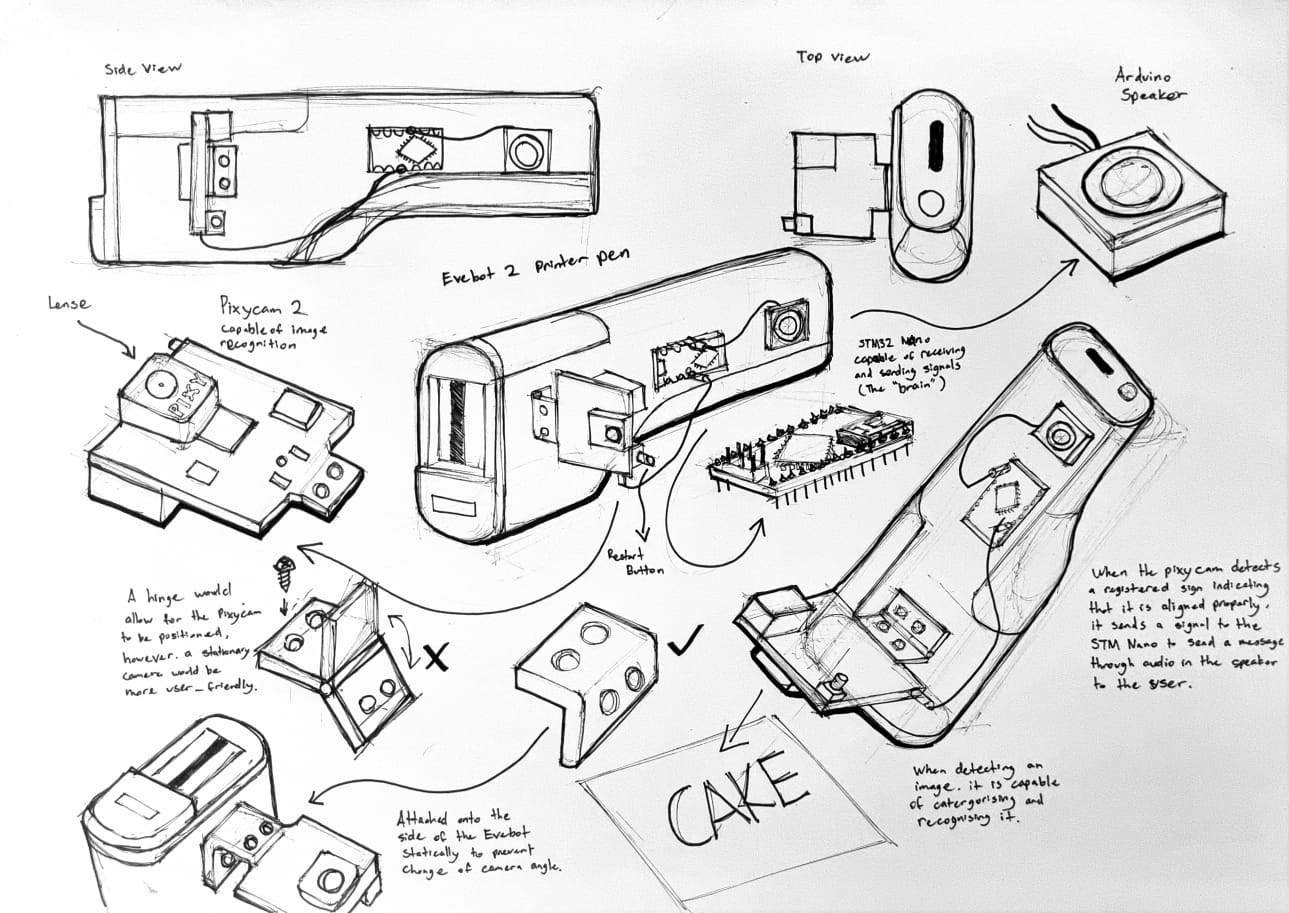 Side View
Top View
Arduino
Speaker
Evebot 2 printer pen
Lense
Pixycam 2
capable of image
recognition
PIXY
STM32 Nano
capable of receiving
and sending signals
(The "brain")
Restart
Button
A hinge would
allow for the Pixycam
to be positioned,
however. a stationary
camera would be
more user-friendly.
X
When the pixycam detects
a registered sign indicating
that it is aligned properly.
it sends a signal to the
STM Nano to send a message
through audio in the speaker
to the user.
CAKE
When detecting an
image. it is capable
of catergorising and
recognising it.
Attached onto the
side of the Evebot
Statically to prevent
change of camera angle.